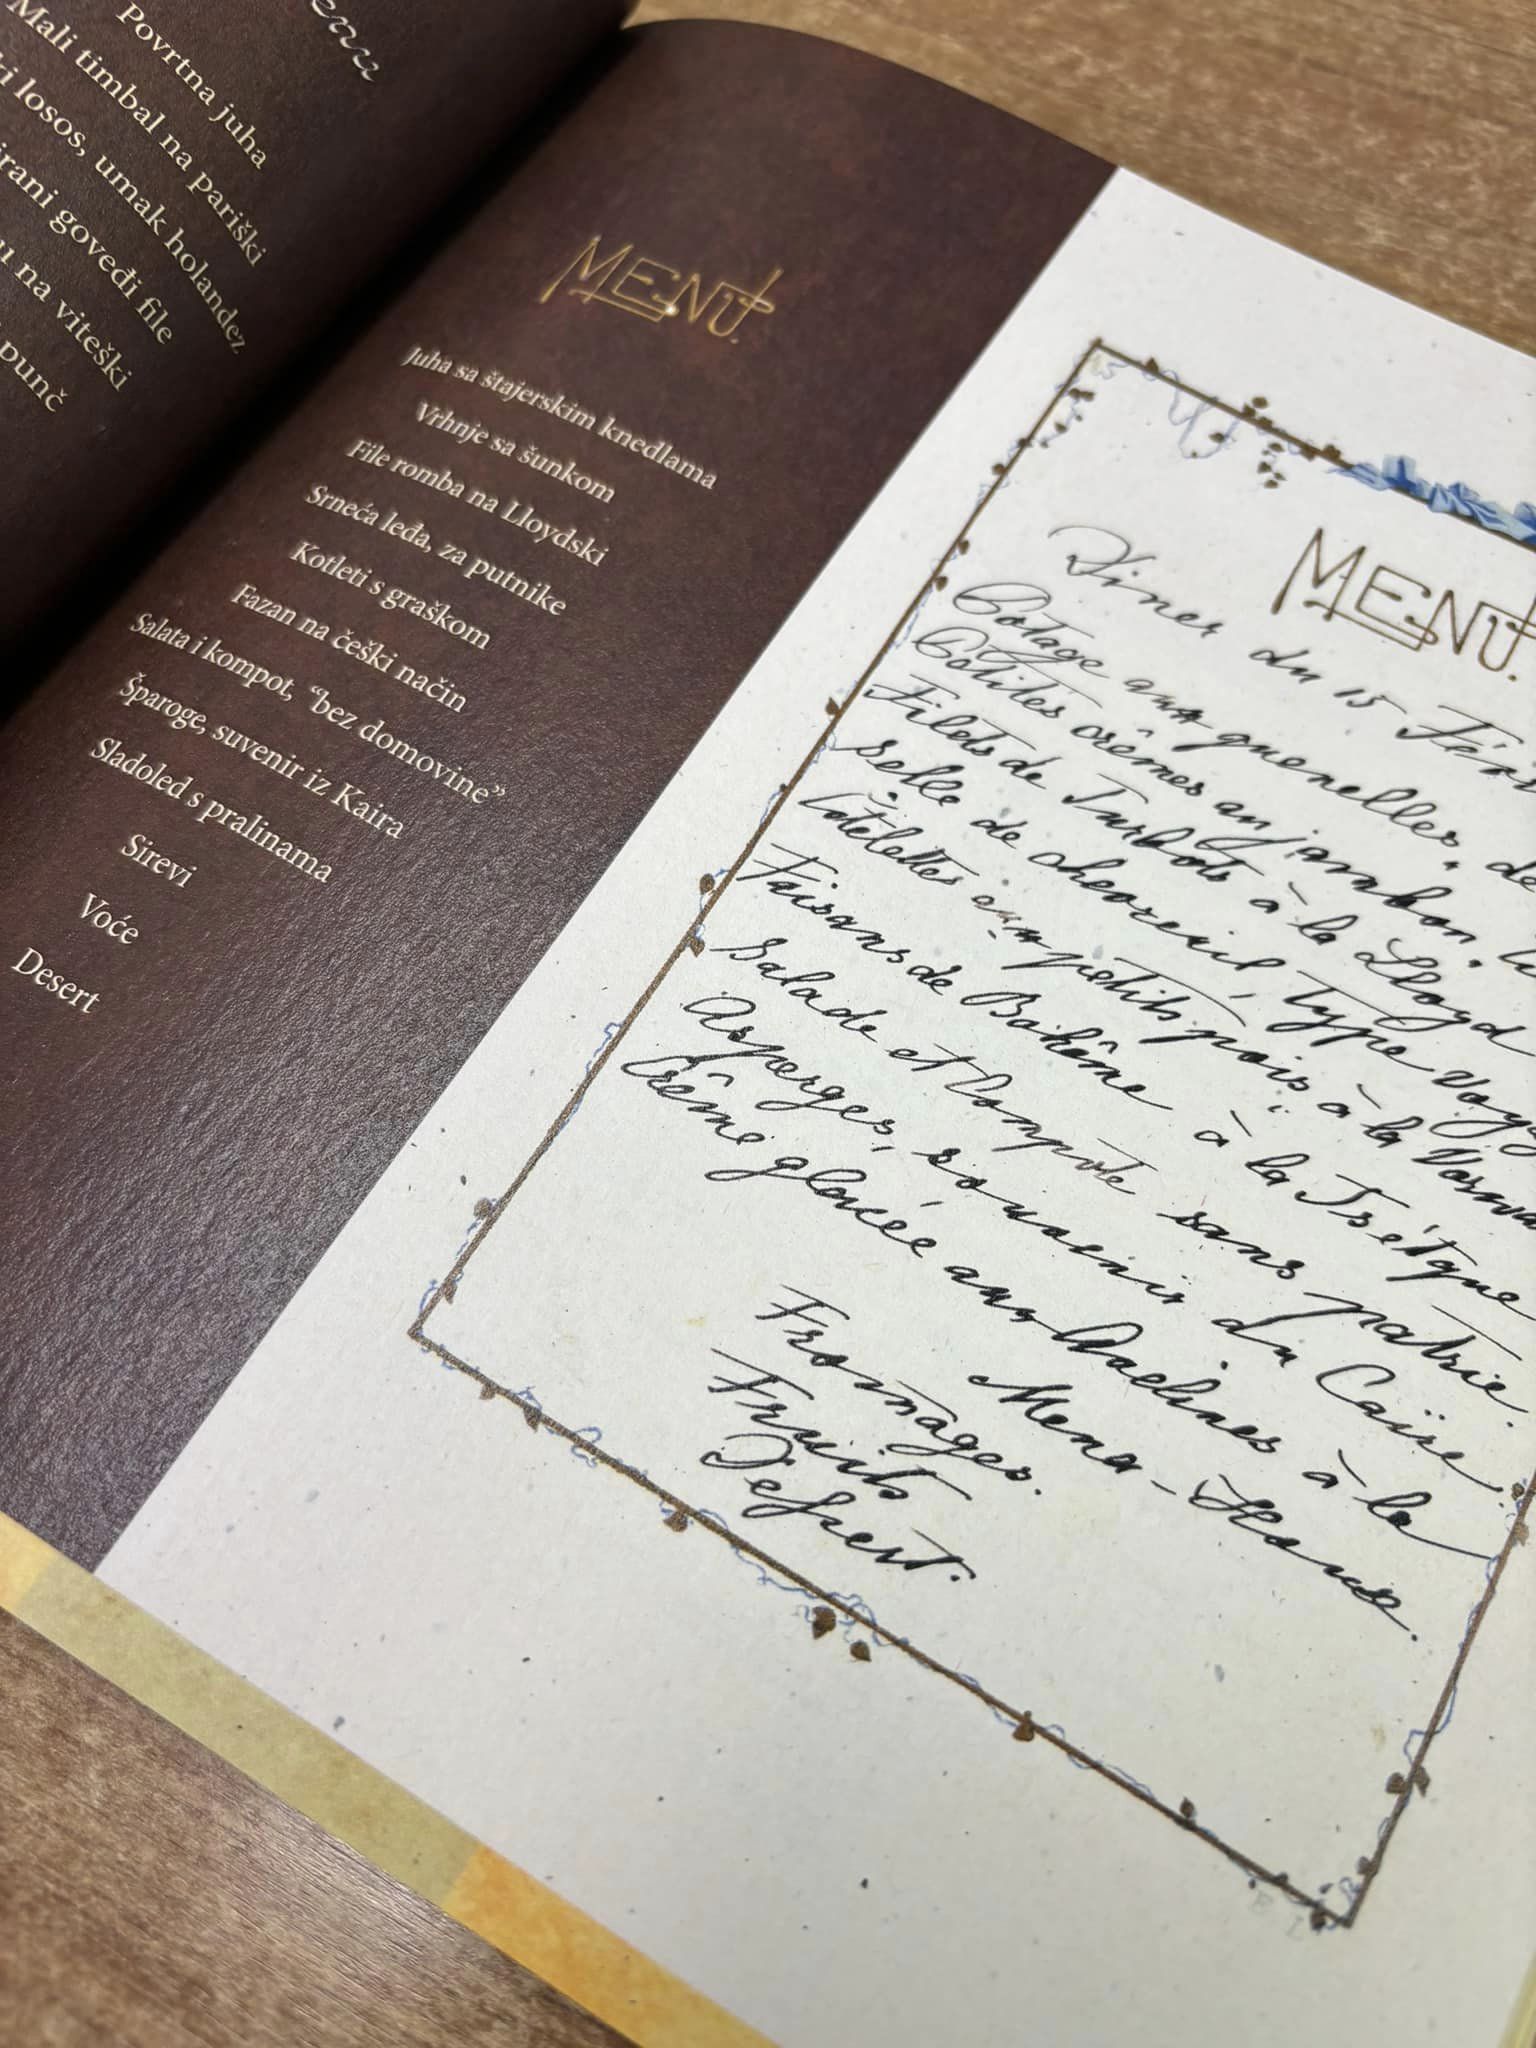 Povrtna juha
Mali timbal na pariški
losos, umak holandez
goveđi file
na viteški
punč
MENU.
Juha sa štajerskim knedlama
Vrhnje sa šunkom
File romba na Lloydski
Srneća leđa, za putnike
Kotleti s graškom
Fazan na češki način
Salata i kompot, “bez domovine”
Šparoge, suvenir iz Kaira
Sladoled s pralinama
Sirevi
Voće
Desert
MENU.
Diner du 15
Potage aux quenelles de
Petites crêmes au jambon.
Filets de Turbots à la Lloyd
Selle de chevreuil, type
Côtelettes aux petits pois à la
Faisans de Bohême à la
Salade et Compote sans patrie.
Asperges, souvenir du Caire.
Crême glacée aux Pralines à la
Mena-House.
Fromages.
Fruits
Dessert.